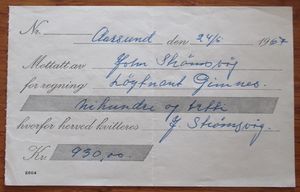 Nr. Aarsund den 24/6 1967
Mottatt av John Strømsvig
for regning Løytnant Gimnes
Nihundre og tretti
hvorfor herved kvitteres J. Strømsvig.
Kr. 930,00.
2604